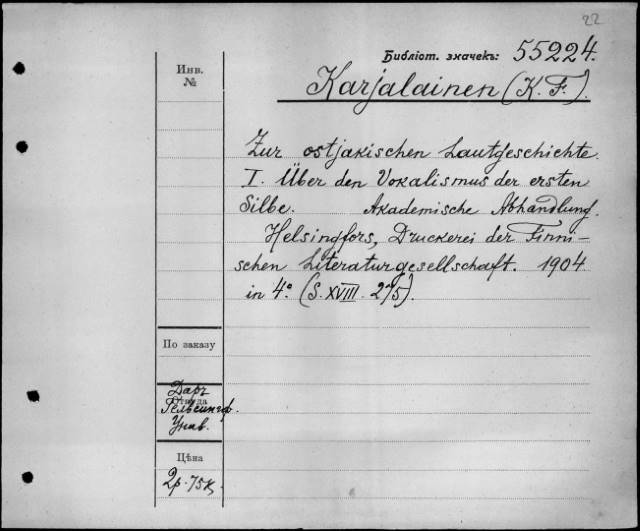 22
Библіот. значекъ: 55224.
Инв.
№
Karjalainen (K. F.).
Zur ostjakischen Lautgeschichte.
I. Über den Vokalismus der ersten
Silbe. Akademische Abhandlung.
Helsingfors, Druckerei der Finni-
schen Literaturgesellschaft. 1904
in 4° (S. XVIII.
По заказу
Откуда
Даръ
Гельсингф.
Унив.
Цѣна
2р. 75к.